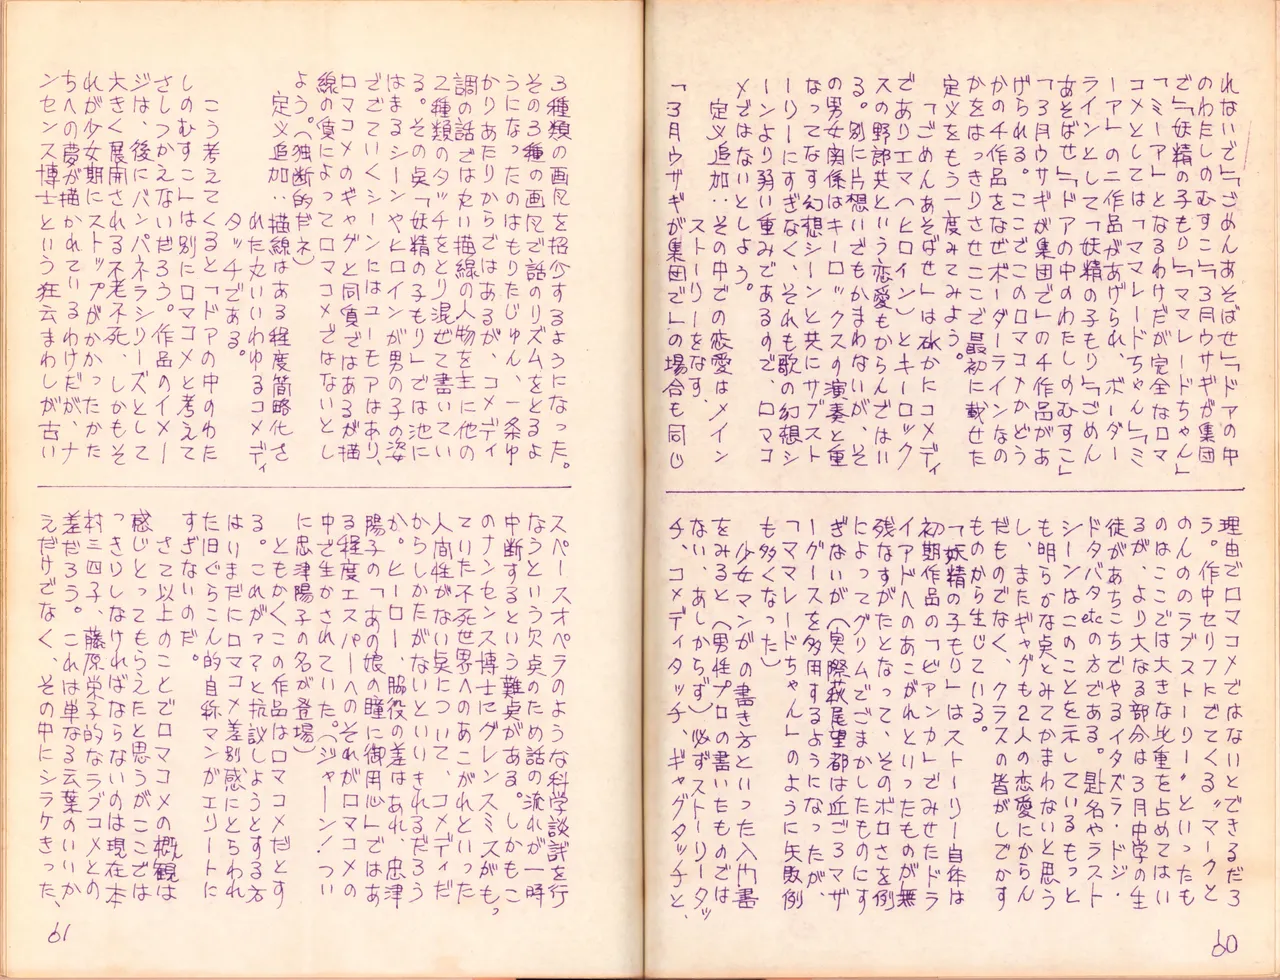 れないで」「ごめんあそばせ」「ドアの中
のわたしのむすこ」「3月ウサギが集団
で」「妖精の子もり」「ママレードちゃん」
「ミーア」となるわけだが完全なロマ
コメとしては「ママレードちゃん」「ミ
ーア」の二作品があげられ、ボーダー
ラインとして「妖精の子もり」「ごめん
あそばせ」「ドアの中のわたしのむすこ」
「3月ウサギが集団で」の4作品があ
げられる。ここでこのロマコメかどう
かの4作品をなぜボーダーラインなの
かをはっきりさせここで最初に載せた
定義をもう一度みてみよう。
「ごめんあそばせ」は確かにコメディ
でありエマ(ヒロイン)とキーロック
スの野郎共という恋愛もからんではい
る。別に片想いでもかまわないが、そ
の男女関係はキーロックスの演奏と重
なってなす幻想シーンと共にサブスト
ーリーにすぎなく、それも歌の幻想シ
ーンより弱い重みであるので、ロマコ
メではないとしよう。
定義追加:その中での恋愛はメイン
ストーリーをなす。
「3月ウサギが集団で」の場合も同じ
理由でロマコメではないとできるだろ
う。作中セリフにでてくる〝マークと
のんののラブストーリー〟といったも
のはここでは大きな比重を占めてはい
るが、より大なる部分は3月中学の生
徒があちこちでやるイタズラ・ドジ・
ドタバタetcの方である。題名やラスト
シーンはこのことを示しているもっと
も明らかな点とみてかまわないと思う
し、またギャグも2人の恋愛にからん
だものでなく、クラスの皆がしでかす
ものから生じている。
「妖精の子もり」はストーリー自体は
初期作品の「ビアンカ」でみせたドラ
イアドへのあこがれといったものが無
残なすがたとなって、そのボロさを例
によってグリムでごまかしたものにす
ぎないが(実際萩尾望都は近ごろマザ
ーグースを多用するようになったが、
「ママレードちゃん」のように失敗例
も多くなった)
少女マンガの書き方といった入門書
をみると(男性プロの書いたものでは
ない、あしからず)必ずストーリータッ
チ、コメディタッチ、ギャグタッチと、
60
3種類の画风を招介するようになった。
その3種の画风で話のリズムをとるよ
うになったのはもりたじゅん、一条ゆ
かりあたりからではあるが、コメディ
調の話では丸い描線の人物を主に他の
2種類のタッチをとり混ぜて書いてい
る。その点「妖精の子もり」では池に
はまるシーンやヒロインが男の子の姿
ででていくシーンにはユーモアはあり、
ロマコメのギャグと同質ではあるが描
線の質によってロマコメではないとし
よう。(独断的だネ)
定義追加:描線はある程度簡略化さ
れた丸いいわゆるコメディ
タッチである。
こう考えてくると「ドアの中のわた
しのむすこ」は別にロマコメと考えて
さしつかえないだろう。作品のイメー
ジは、後にバンパネラシリーズとして
大きく展開される不老不死、しかもそ
れが少女期にストップがかかったかた
ちへの夢が描かれているわけだが、ナ
ンセンス博士という狂言まわしが古い
スペースオペラのような科学談議を行
なうという欠点のため話の流れが一時
中断するという難点がある。しかもこ
のナンセンス博士にグレンスミスがもっ
ていた不死世界へのあこがれといった
人間性がない点について、コメディだ
からしかたがないといいきれるだろう
か。ヒーロー、脇役の差はあれ、忠津
陽子の「あの娘の瞳に御用心」ではあ
る程度エスパーへのそれがロマコメの
中で生かされていた。(ジャーン!つい
に忠津陽子の名が登場)
ともかくこの作品はロマコメだとす
る。これがァ?と抗議しようとする方
はいまだにロマコメ差別感にとらわれ
た旧ぐらこん的自称マンがエリートに
すぎないのだ。
さて以上のことでロマコメの概観は
感じとってもらえたと思うがここでは
っきりしなければならないのは現在本
村三四子、藤原栄子的なラブコメとの
差だろう。これは単なる云葉のいいか
えだけでなく、その中にシラケきった、
61